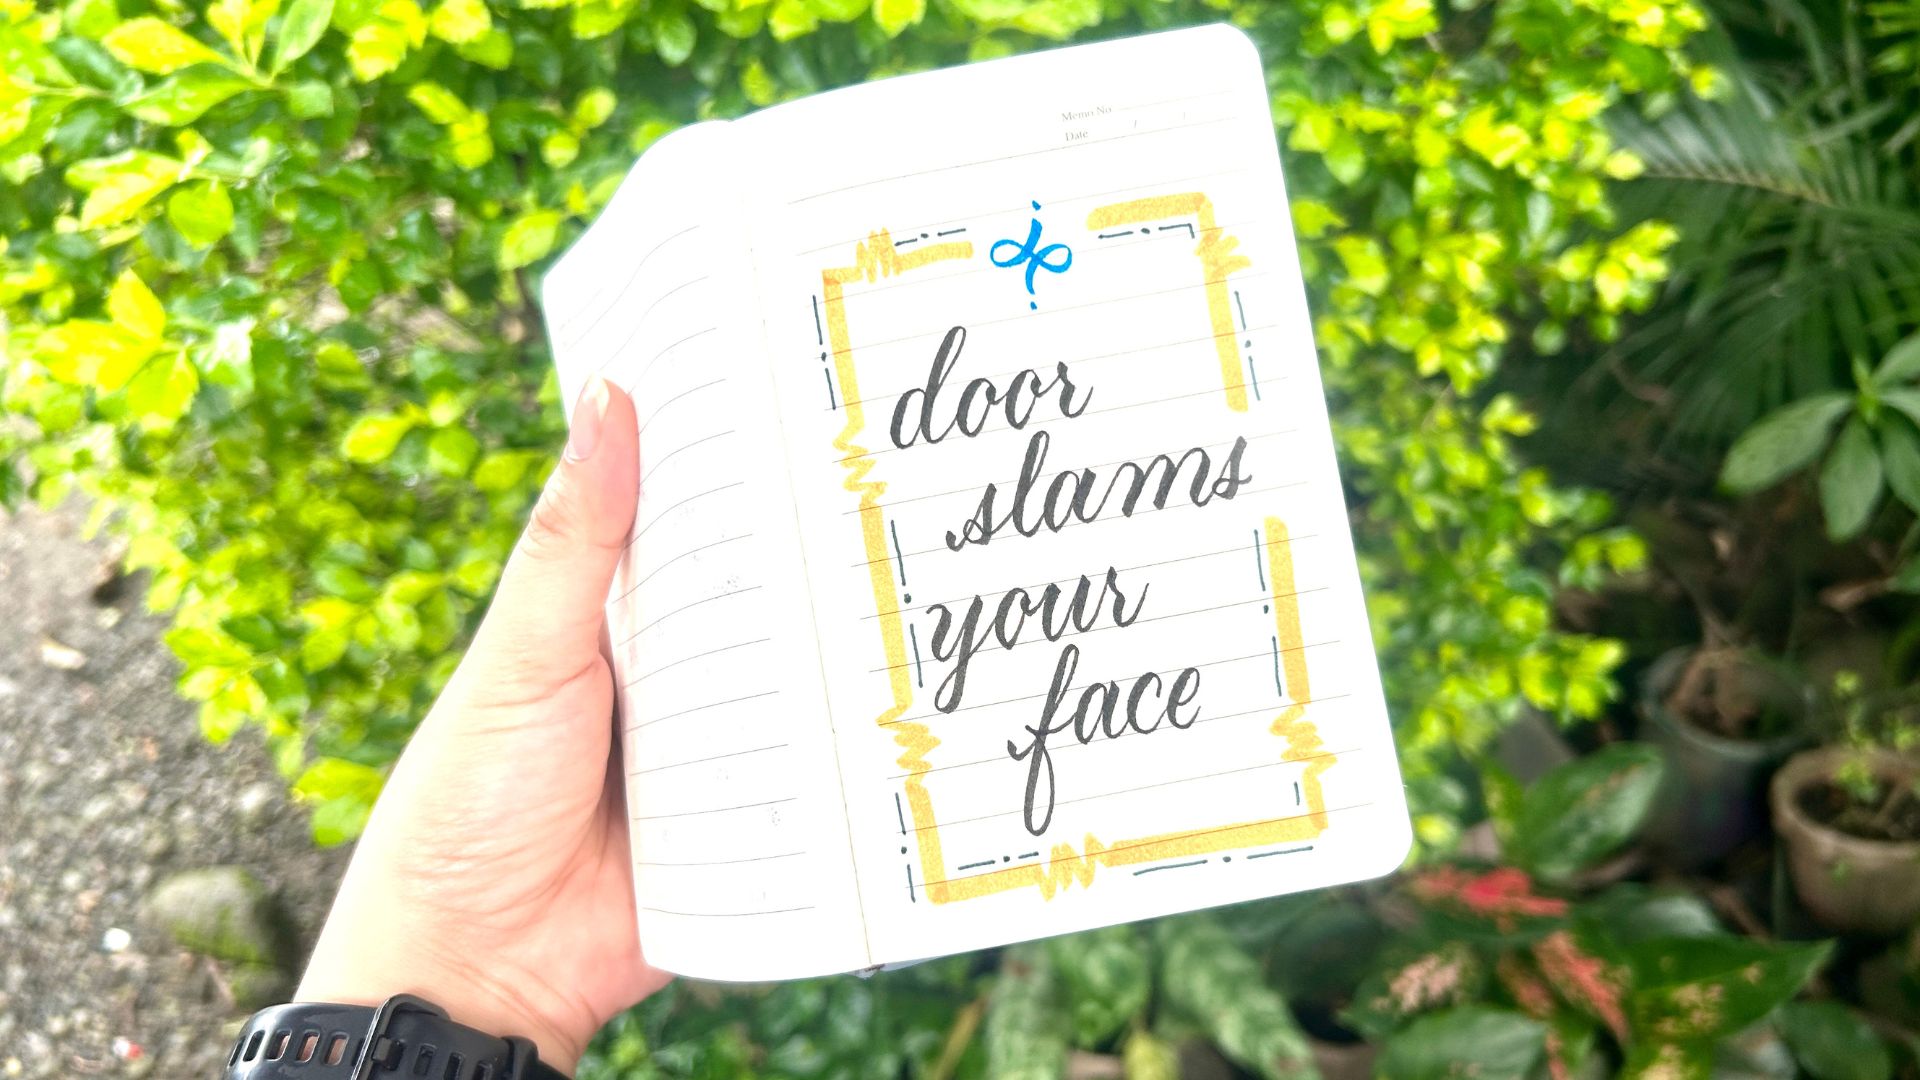 Memo No
Date / /
door
slams
your
face